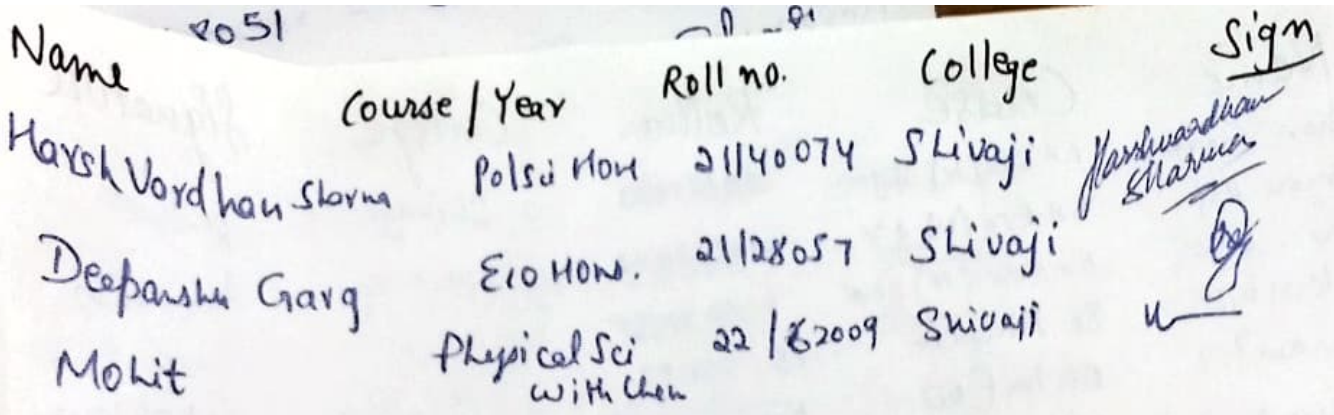 8051
Name Course / Year Roll no. College Sign
Harsh Vardhan Sharma Polsci Hons 21/40074 Shivaji Harshvardhan Sharma
Deepanshu Garg Eco Hons. 21/28057 Shivaji
Mohit Physical Sci With Chem 22/82009 Shivaji